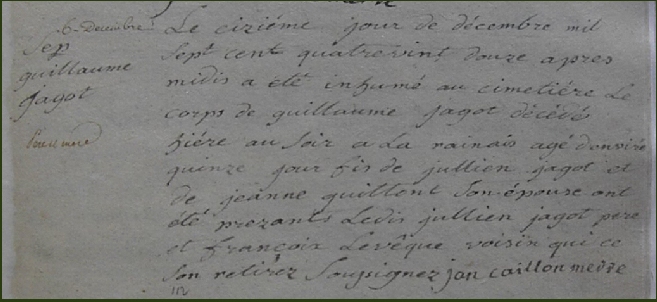 6 Decembre
Sep
guillaume
jagot
Le ciziéme jour de décembre mil
sept cent quatrevint douze apres
midis a été inhumé au cimetiére Le
corps de guillaume jagot décédé
hiére au soir a La rainais agé donviré
quinze jour fis de jullien jagot et
de jeanne guillont son épouse ont
été prezants Ledis jullien jagot pere
et francois Levêque voisin qui ce
son retirez Soussignez jan caillon medre